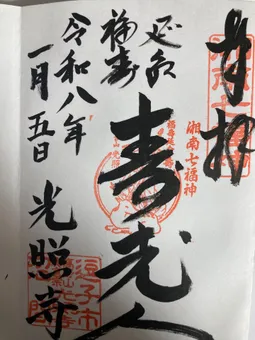 奉拝
湘南七福神
寿老人
延命
福寿
令和八年
一月五日
光照寺
逗子市